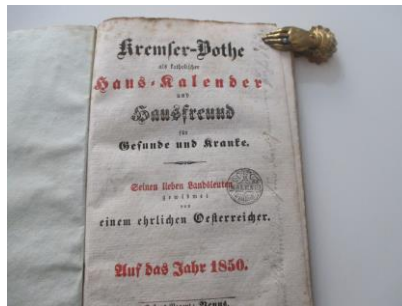 Kremser-Bothe
als katholischer
Haus-Kalender
und
Hausfreund
für
Gesunde und Kranke.
Seinen lieben Landsleuten
gewidmet
von
einem ehrlichen Oesterreicher.
Auf das Jahr 1850.